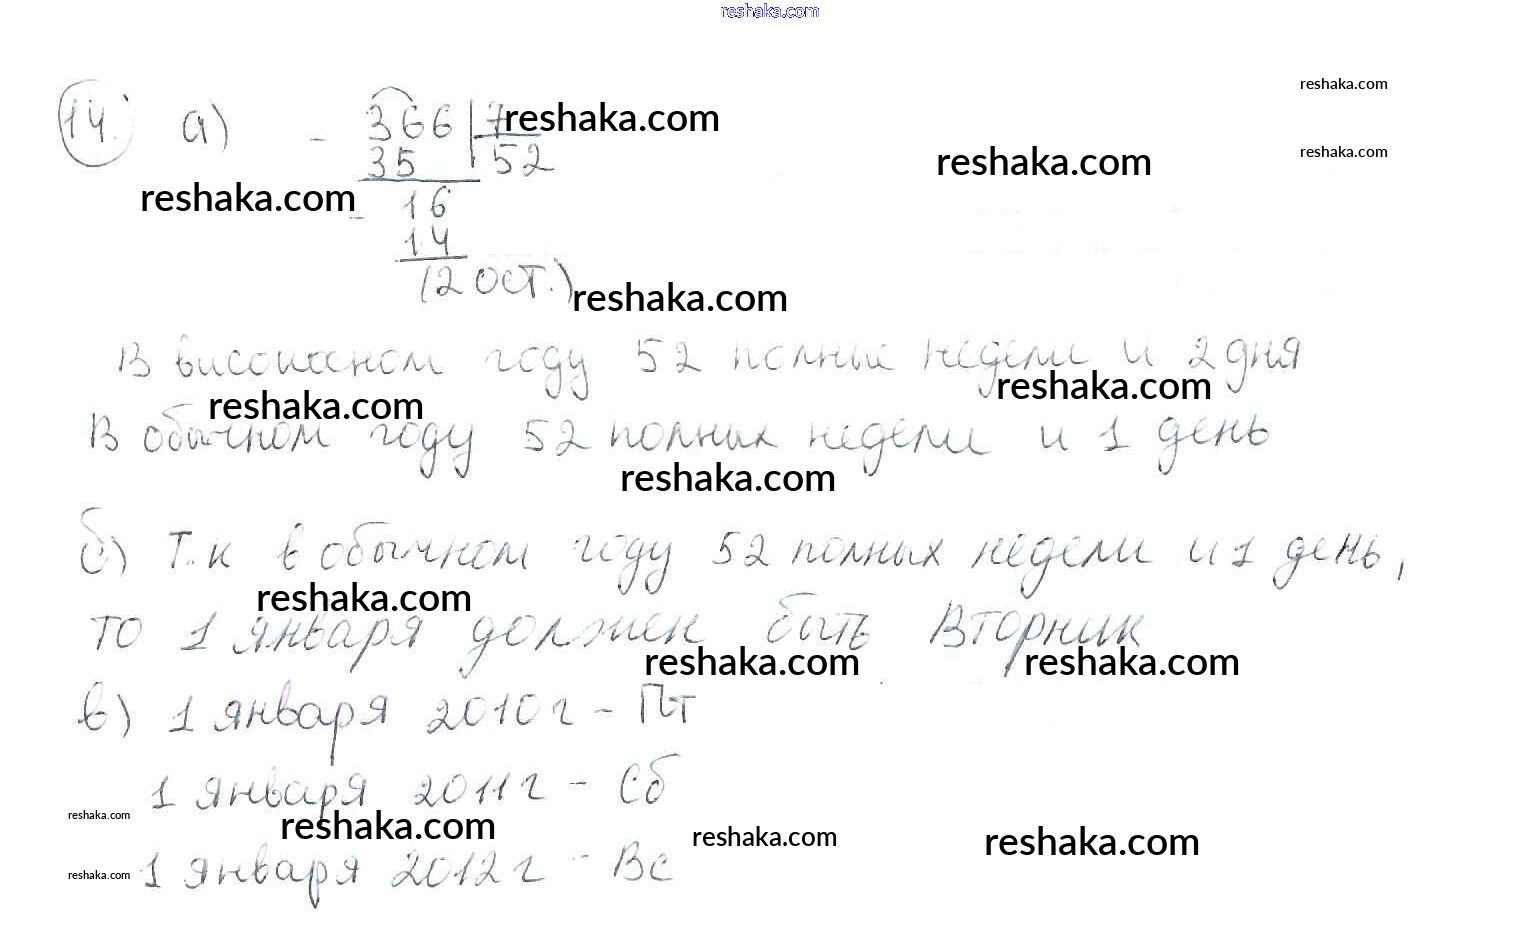 reshaka.com
14. а) - 366 | 7 reshaka.com reshaka.com
35 52 reshaka.com reshaka.com
reshaka.com - 16
14
(2 ост.) reshaka.com
В високосном году 52 полные недели и 2 дня
reshaka.com reshaka.com
В обычном году 52 полных недели и 1 день
reshaka.com
б) Т.к в обычном году 52 полных недели и 1 день,
reshaka.com
то 1 января должен быть Вторник
reshaka.com reshaka.com
в) 1 января 2010г - Пт
1 января 2011г - Сб
reshaka.com reshaka.com reshaka.com reshaka.com
reshaka.com 1 января 2012г - Вс